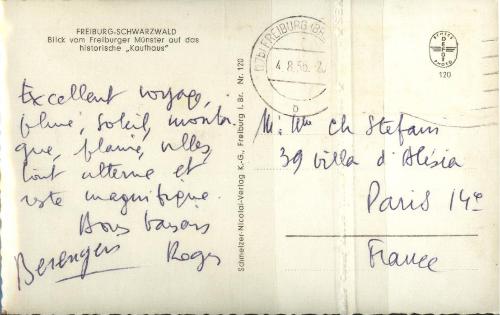 FREIBURG-SCHWARZWALD
Blick vom Freiburger Münster auf das
historische „Kaufhaus"
Excellent voyage,
pluie, soleil, monta
gne, plaine, villes,
tout alterne et
reste magnifique.
Bons baisers
Berengers Roger
Schmelzer-Nicolai-Verlag K.-G., Freiburg i. Br. Nr. 120
FREIBURG (BR
4.8.56.
b
ECHTES
DEPOT
PHOTO
120
M. Mme Ch Stefani
39 villa d'Alésia
Paris 14e
France